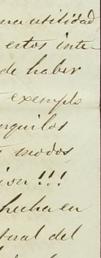 una utilidad
estos inte-
de haber
exemplo
nquilos
modos
!!!
hecha en
teral del